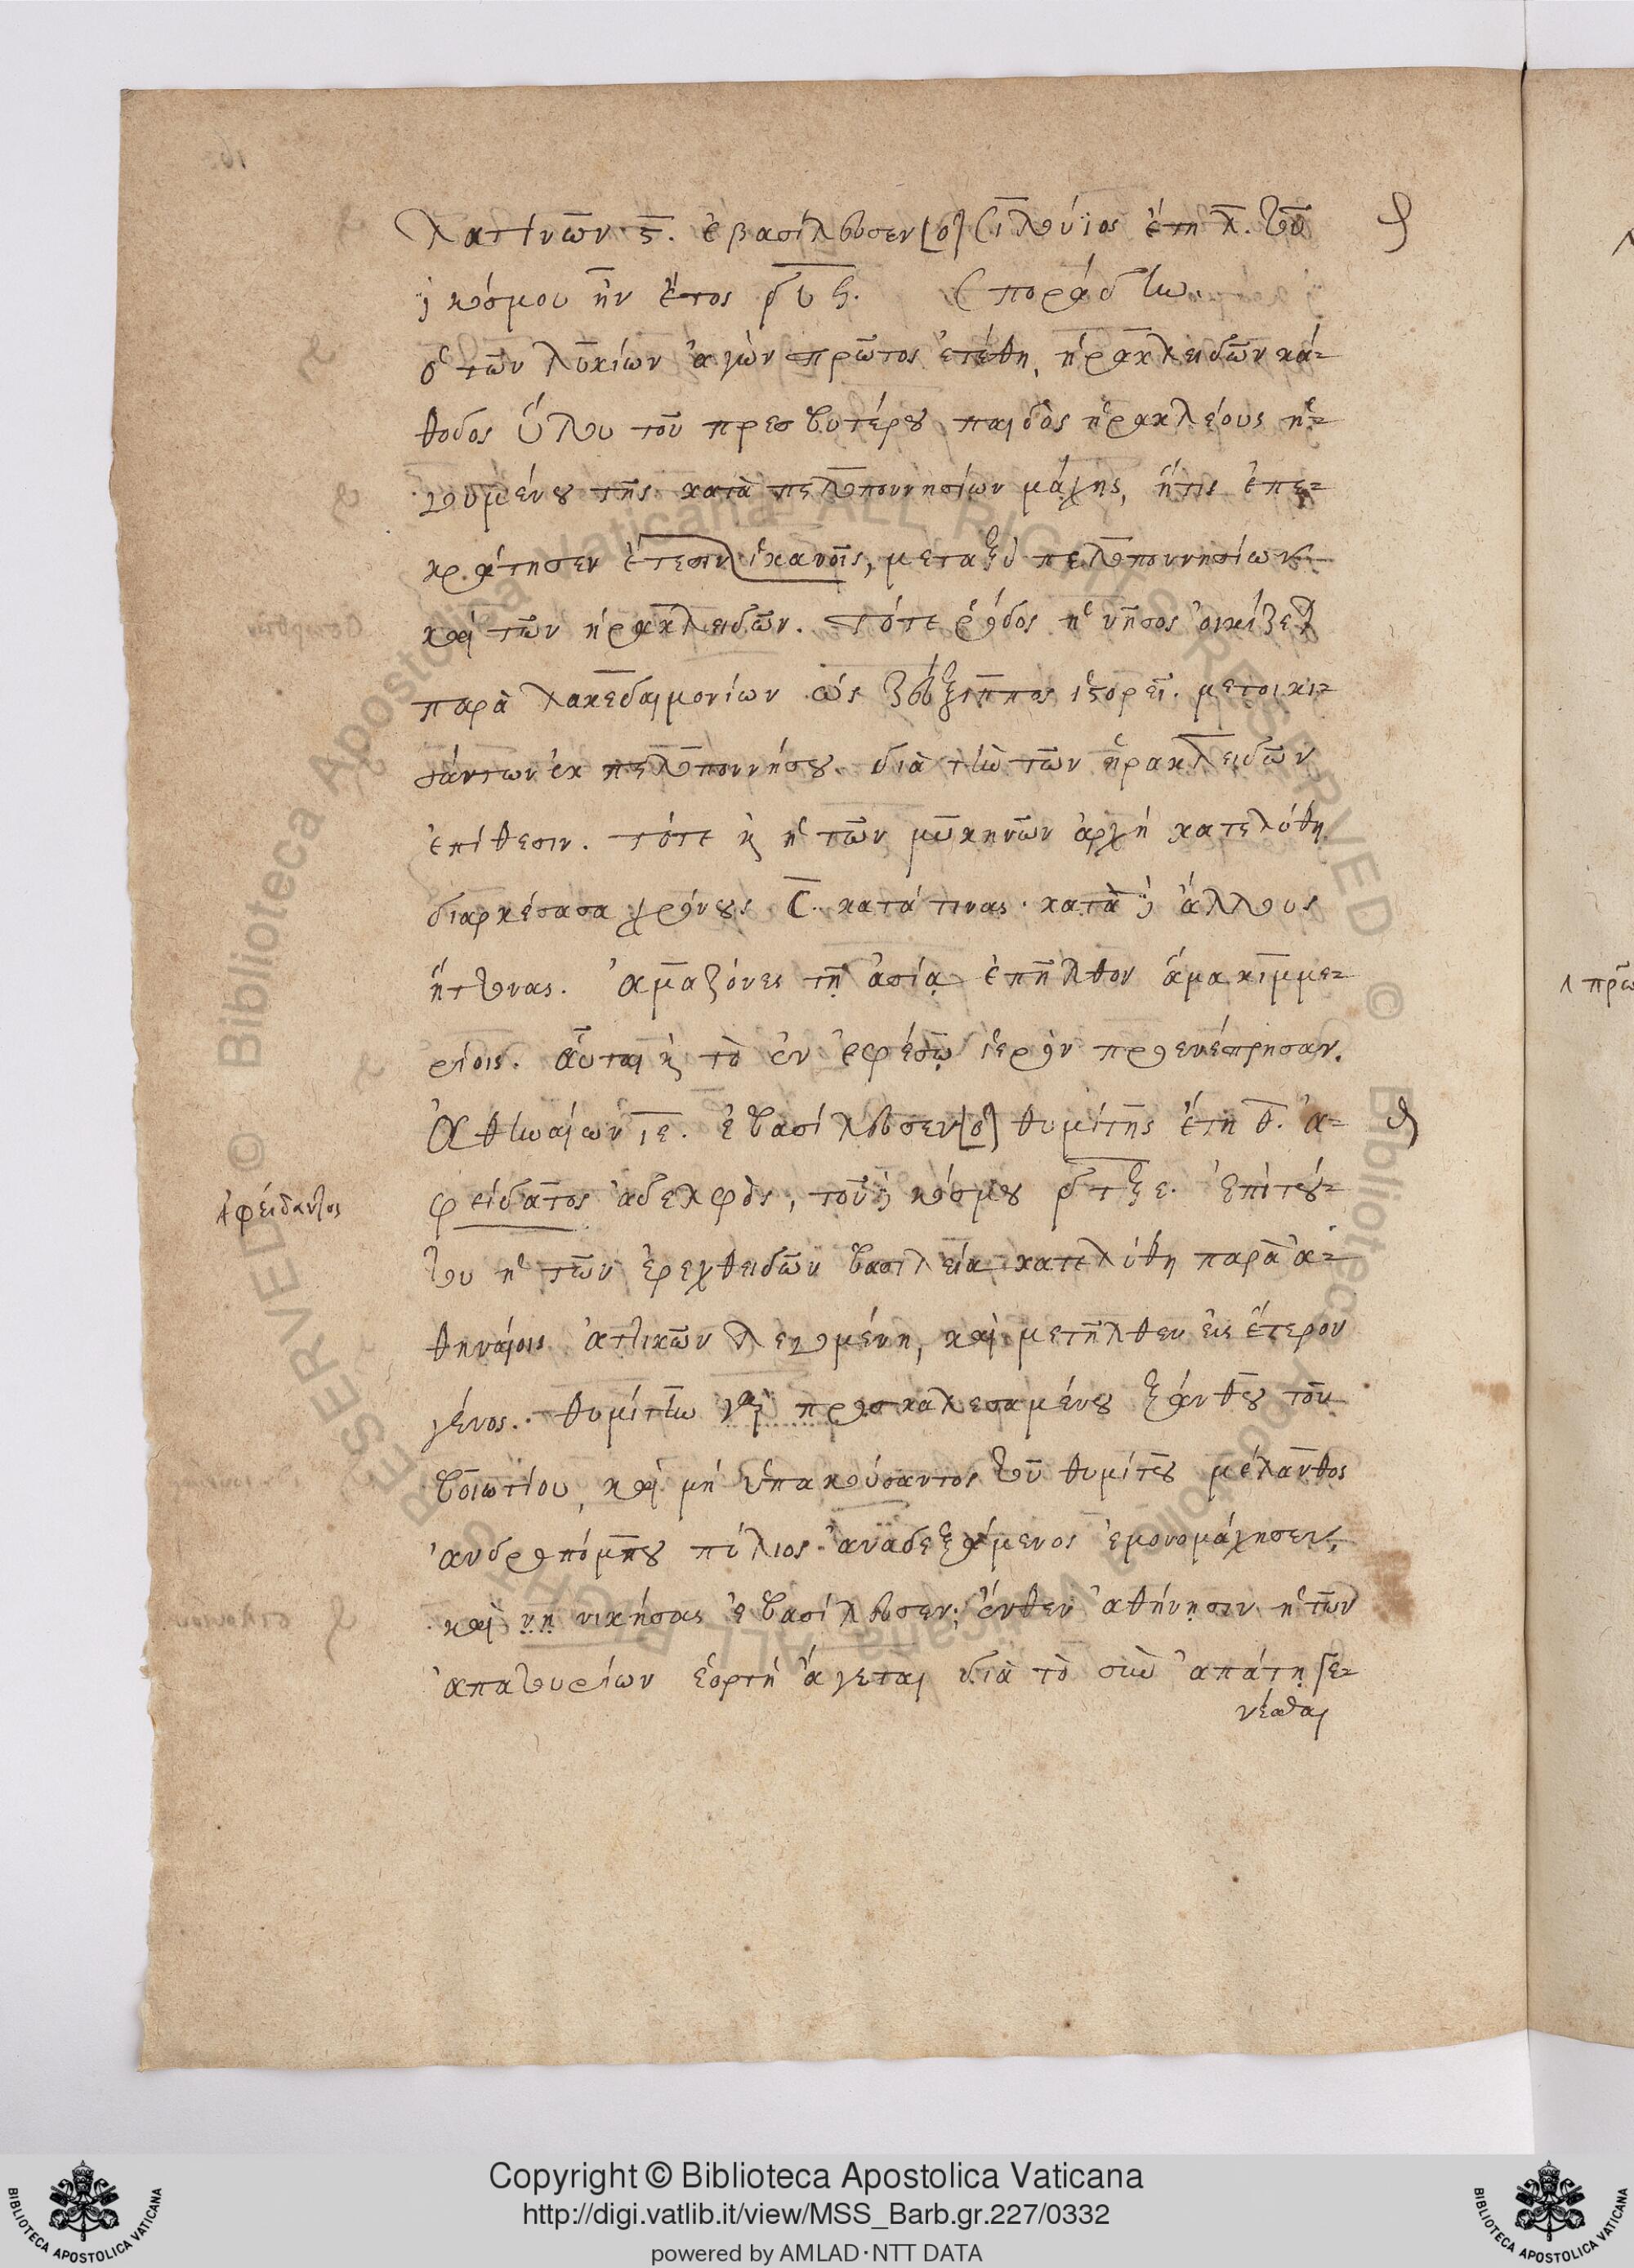 λατίνων ς. ἐβασίλευσεν [ὁ] Σιλούϊος ἔτη λ. τοῦ
δὲ κόσμου ἦν ἔτος δυϟ. Σποράδην.
ὁ τῶν λυκίων ἀγὼν πρῶτος ἐτέθη, ἡρακλειδῶν κά-
θοδος ὕλου τοῦ πρεσβυτέρου παιδὸς ἡρακλέους ἡ-
γουμένου τῆς κατὰ πελοποννησίων μάχης, ἥτις ἐπε-
κράτησεν ἔτεσιν ἱκανοῖς, μεταξὺ πελοποννησίων
καὶ τῶν ἡρακλειδῶν. τότε ῥόδος ἡ νῆσος οἰκίζεται
παρὰ λακεδαιμονίων ὡς ζεύξιππος ἱστορεῖ. μετοικι-
σάντων ἐκ πελοποννήσου. διὰ τὴν τῶν ἡρακλειδῶν
ἐπίθεσιν. τότε καὶ ἡ τῶν μυκηνῶν ἀρχὴ κατελύθη
διαρκέσασα χρόνους σ. κατά τινας. κατὰ δὲ ἄλλους
ἥττονας. ἀμαζόνες τῇ ἀσίᾳ ἐπῆλθον ἅμα κιμμε-
ρίοις. αὗται καὶ τὸ ἐν ἐφέσῳ ἱερὸν προενέπρησαν.
Ἀθηναίων ιε. ἐβασίλευσεν [ὁ] θυμίτης ἔτη θ. ἀ-
φείδατος ἀδελφὸς, τοῦ δὲ κόσμου δτξε. ἐπὶ τού-
του ἡ τῶν ἐρεχθειδῶν βασιλεία κατελύθη παρὰ ἀ-
Ἀφείδαντος
θηναίοις ἀττικῶν λεγομένη, καὶ μετῆλθεν εἰς ἕτερον
γένος. θυμίτην γὰρ προσκαλεσαμένου ξάνθου τοῦ
βοιωτίου, καὶ μὴ ὑπακούσαντος τοῦ θυμίτου μέλανθος
ἀνδροπόμπου πύλιος ἀναδεξάμενος ἐμονομάχησεν,
καὶ νη νικήσας ἐβασίλευσεν; ἔνθεν ἀθήνησιν ἡ τῶν
ἀπατουρίων ἑορτὴ ἄγεται διὰ τὸ σὺν ἀπάτῃ γε-
νέσθαι
Copyright © Biblioteca Apostolica Vaticana
http://digi.vatlib.it/view/MSS_Barb.gr.227/0332
powered by AMLAD·NTT DATA